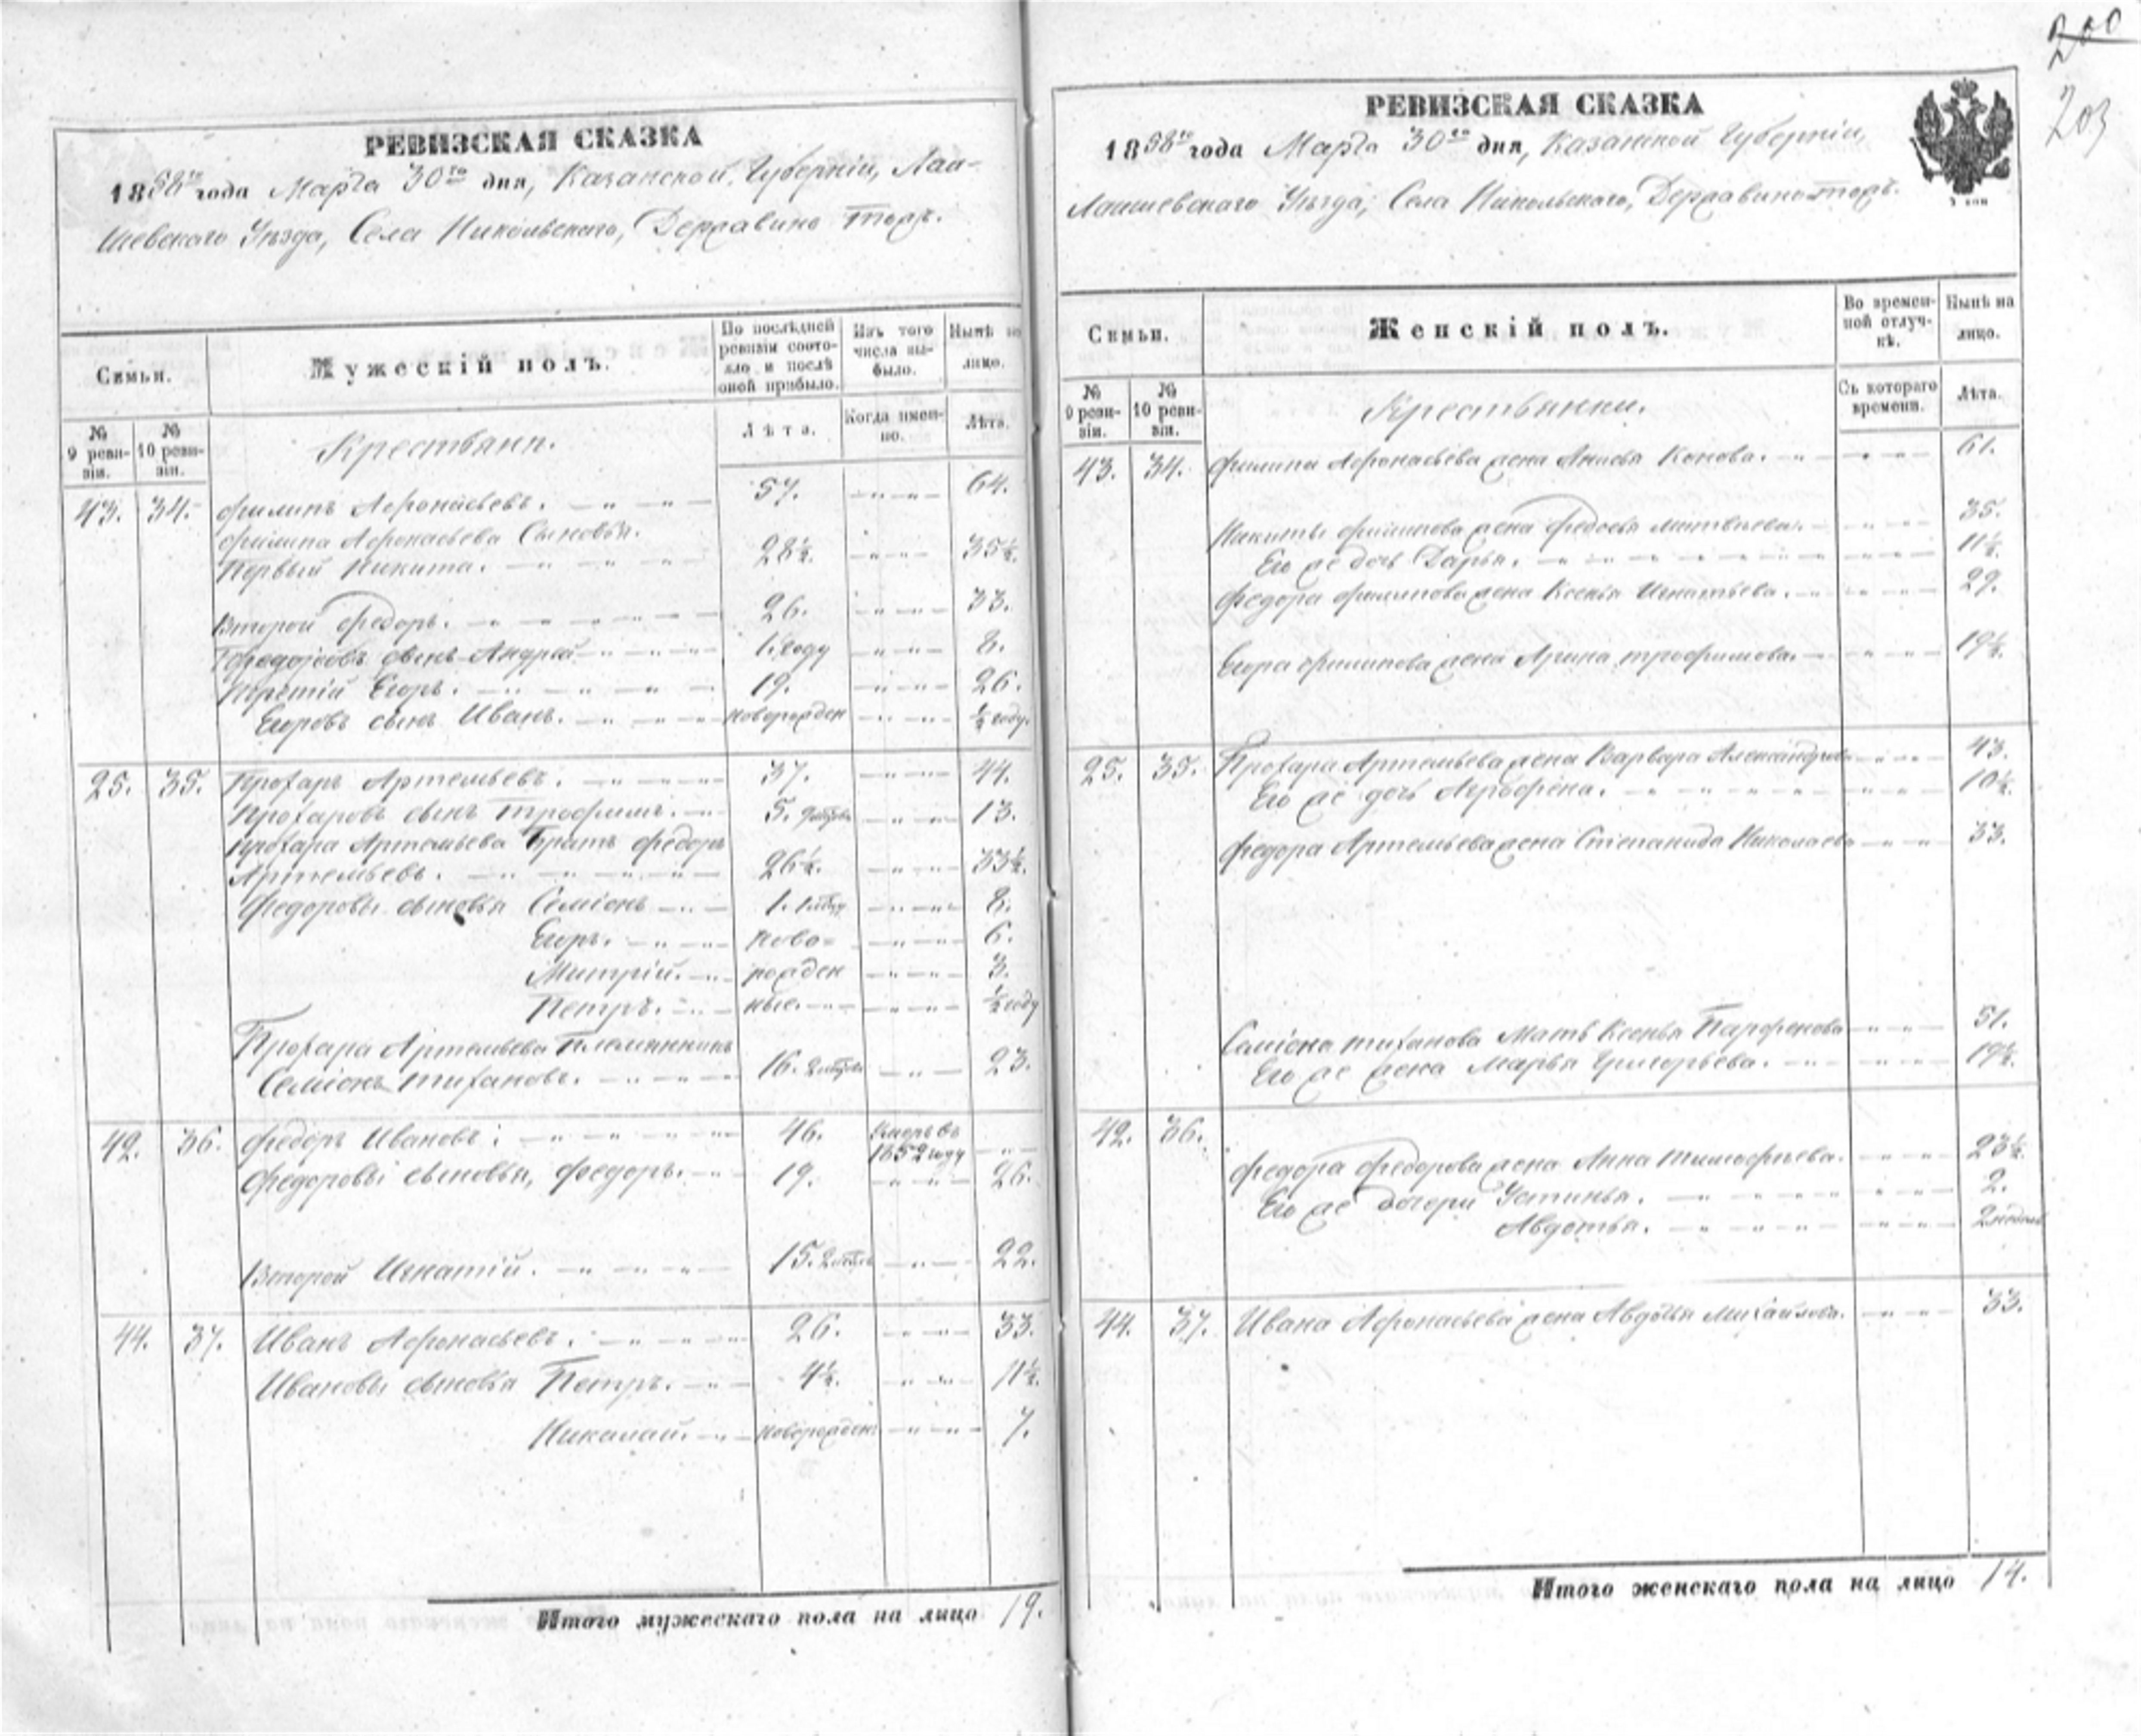 200
203
РЕВИЗСКАЯ СКАЗКА
1858го года Марта 30го дня, Казанской Губерніи, Лаи-
шевскаго Уѣзда, Села Никольскаго, Державино тожъ.
Семьи.
Мужескій полъ.
По послѣдней ревизіи состояло и послѣ оной прибыло.
Изъ того числа выбыло.
Нынѣ на лицо.
№ 9 ревизіи.
№ 10 ревизіи.
Крестьяни.
Лѣта.
Когда именно.
Лѣта.
43. 34. Филипъ Афонасьевъ. 57. 64.
Филипа Афонасьева Сыновья.
Первый Никита. 28½. 35½.
Второй Федоръ. 26. 33.
Федоровъ сынъ Андрей 1. году 8.
Третій Егоръ. 19. 26.
Егоровъ сынъ Иванъ. новорожден ½ году.
25. 35. Прохаръ Артемьевъ. 37. 44.
Прохаровъ сынъ Трофимъ. 5. 13.
Прохара Артемьева Братъ Федоръ
Артемьевъ. 26½. 33½.
Федоровы сыновья Семіонъ 1. 8.
Егоръ. ново- 6.
Митрій. рожден 3.
Петръ. ные. ½ году
Прохара Артемьева Племянникъ
Семіонъ Тихановъ. 16. 23.
42. 36. Федоръ Ивановъ. 46. Умеръ въ
1852 году
Федоровы сыновья, Федоръ. 19. 26.
Второй Игнатій. 15. 22.
44. 37. Иванъ Афонасьевъ. 26. 33.
Ивановы сыновья Петръ. 4½. 11½.
Николай. новорожден. 7.
Итого мужескаго пола на лицо 19.
РЕВИЗСКАЯ СКАЗКА
1858го года Марта 30го дня, Казанской Губерніи,
Лаишевскаго Уѣзда, Села Никольскаго, Державино тожъ.
Семьи.
Женскій полъ.
Во временной отлучкѣ.
Нынѣ на лицо.
№ 9 ревизіи.
№ 10 ревизіи.
Крестьянки.
Съ котораго времени.
Лѣта.
43. 34. Филипа Афонасьева жена Анисья Конова. 61.
Никиты Филипова жена Федосья Матвѣева. 35.
Его же дочь Дарья. 11½.
Федора Филипова жена Ксенья Игнатьева. 29.
Егора Филипова жена Арина Трофимова. 19½.
25. 35. Прохара Артемьева жена Варвара Александрова 43.
Его же дочь Агрофена. 10½.
Федора Артемьева жена Степанида Николаева 33.
Семіона Тиханова Мать Ксенья Парфенова 51.
Его же жена Марья Григорьева. 19½.
42. 36.
Федора Федорова жена Анна Тимофѣева. 23½.
Его же дочери Устинья. 2.
Авдотья. 2 недѣль
44. 37. Ивана Афонасьева жена Авдотья Михайлова. 33.
Итого женскаго пола на лицо 14.